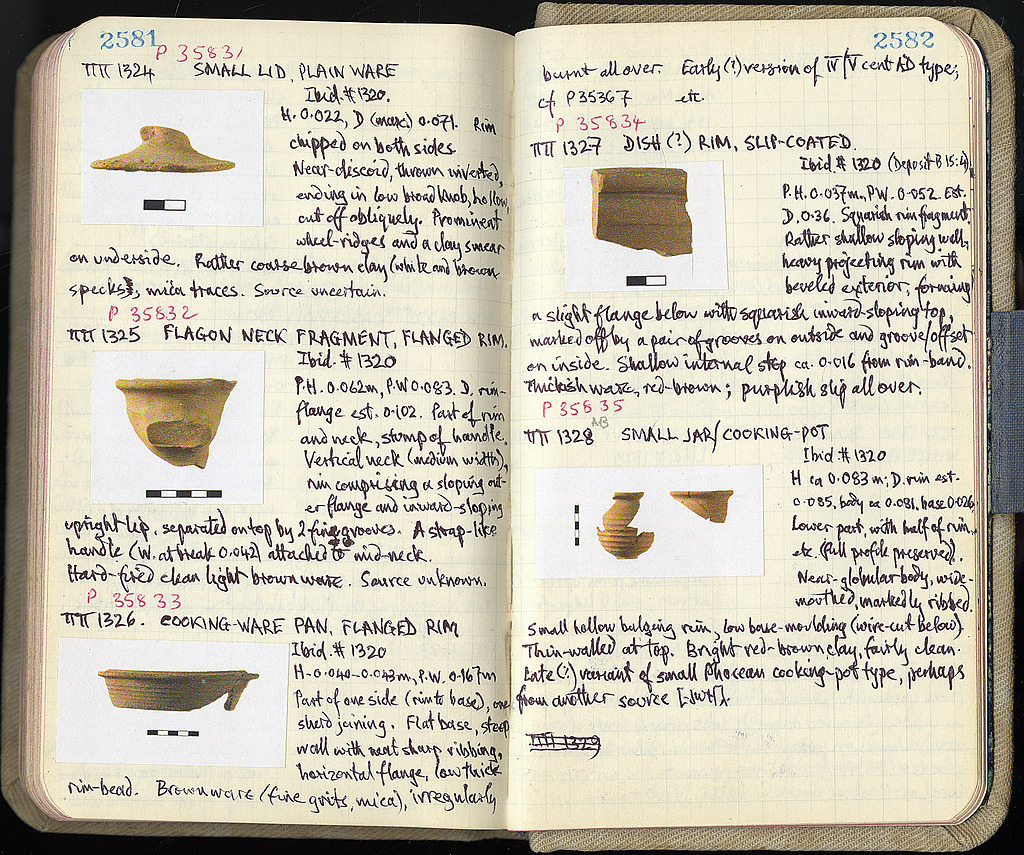 2581
P 35831
ΠΠ 1324 SMALL LID, PLAIN WARE
Ibid. # 1320.
H. 0.022, D (max) 0.071. Rim
chipped on both sides
Near-discoid, thrown inverted,
ending in low broad knob, hollow,
cut off obliquely. Prominent
wheel-ridges and a clay smear
on underside. Rather coarse brown clay (white and brown
specks), mica traces. Source uncertain.
P 35832
ΠΠ 1325 FLAGON NECK FRAGMENT, FLANGED RIM.
Ibid. # 1320
P.H. 0.062m, P.W 0.083. D. rim-
flange est. 0.102. Part of rim
and neck, stump of handle.
Vertical neck (medium width),
rim comprising a sloping out-
er flange and inward-sloping
upright lip, separated on top by 2 fine grooves. A strap-like
handle (W. at break 0.042) attached to mid-neck.
Hard-fired clean light brown ware. Source unknown.
P 35833
ΠΠ 1326. COOKING-WARE PAN, FLANGED RIM
Ibid # 1320
H. 0.040-0.043m, P.W. 0.167m
Part of one side (rim to base), one
sherd joining. Flat base, steep
wall with neat sharp ribbing,
horizontal flange, low thick
rim-bead. Brown ware (fine grits, mica), irregularly
2582
burnt all over. Early (?) version of IV/V cent AD type;
cf. P35367 etc.
P 35834
ΠΠ 1327 DISH (?) RIM, SLIP-COATED.
Ibid # 1320 (Deposit B 15:4).
P.H. 0.037m, P.W. 0.052. Est.
D. 0.36. Squarish rim fragment.
Rather shallow sloping wall,
heavy projecting rim with
beveled exterior, forming
a slight flange below with squarish inward-sloping top,
marked off by a pair of grooves on outside and groove/offset
on inside. Shallow internal step ca. 0.016 from rim-band.
Thickish ware, red-brown; purplish slip all over.
P 35835
AB
ΠΠ 1328 SMALL JAR/COOKING-POT
Ibid # 1320
H ca 0.083 m; D. rim est.
0.085, body ca 0.081, base 0.026
Lower part, with half of rim
etc. (full profile preserved).
Near-globular body, wide-
mouthed, markedly ribbed.
Small hollow bulging rim, low base-moulding (wire-cut below)
Thin-walled at top. Bright red-brown clay, fairly clean.
Late (?) variant of small Phocean cooking-pot type, perhaps
from another source [JWH].
ΠΠ 1329